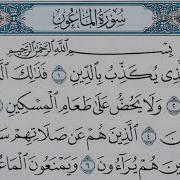 سُورَةُ المَاعُونِ
بِسْمِ اللَّهِ الرَّحْمَٰنِ الرَّحِيمِ
ذِى يُكَذِّبُ بِٱلدِّينِ ١ فَذَٰلِكَ ٱلَّ
٢ وَلَا يَحُضُّ عَلَىٰ طَعَامِ ٱلْمِسْكِينِ
٤ ٱلَّذِينَ هُمْ عَن صَلَاتِهِمْ سَ
ذِينَ هُمْ يُرَآءُونَ ٦ وَيَمْنَعُونَ ٱلْمَاعُ